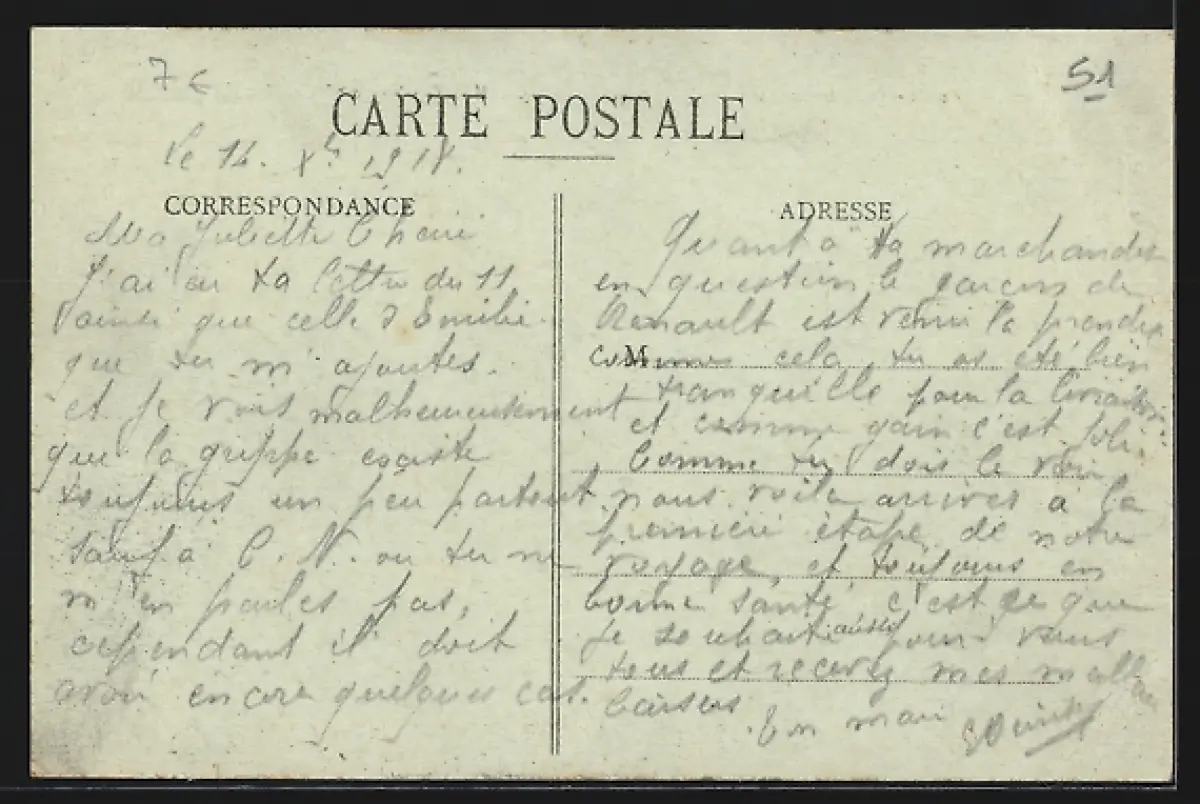 7 €
51
CARTE POSTALE
Le 14. Xbre 1918.
CORRESPONDANCE
Ma Juliette Cherie
J'ai eu ta lettre du 11
ainsi que celle d'Emilie
que tu m'ajoutes.
et je vois malheureusement
que la grippe existe
toujours un peu partout
sauf a C. N. ou tu ne
m'en parles pas,
cependant il doit
avoir encore quelques cas.
ADRESSE
Quant a ta marchandise
en question le garcon de
Renault est venu la prendre
M
comme cela tu as été bien
tranquille pour la livraison
et comme gain c'est joli.
Comme tu dois le voir
nous voila arrives à la
premiere étape de notre
voyage, et toujours en
bonne santé, c'est ce que
je souhaite aussi pour vous
tous et recevez mes meilleurs
baisers
Ton mari